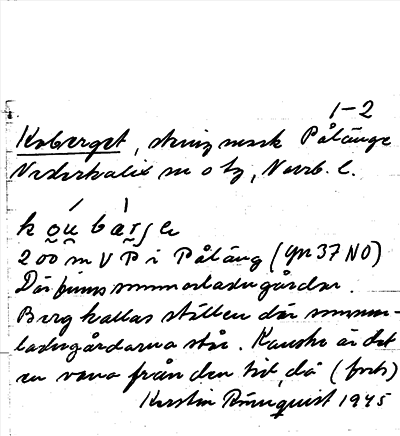 1-2
Koberget, skrinj mark Pålänge
Nederkalix sn o tg, Norrb. l.
kou bærje
200 m V P i Påläng (Yn 37 NO)
Där finns sommarladugårdar.
Berg kallas ställen där sommar-
ladugårdarna stå. Kanske är det
en vana från den tid, då (forts)
Kerstin Rönnquist 1945